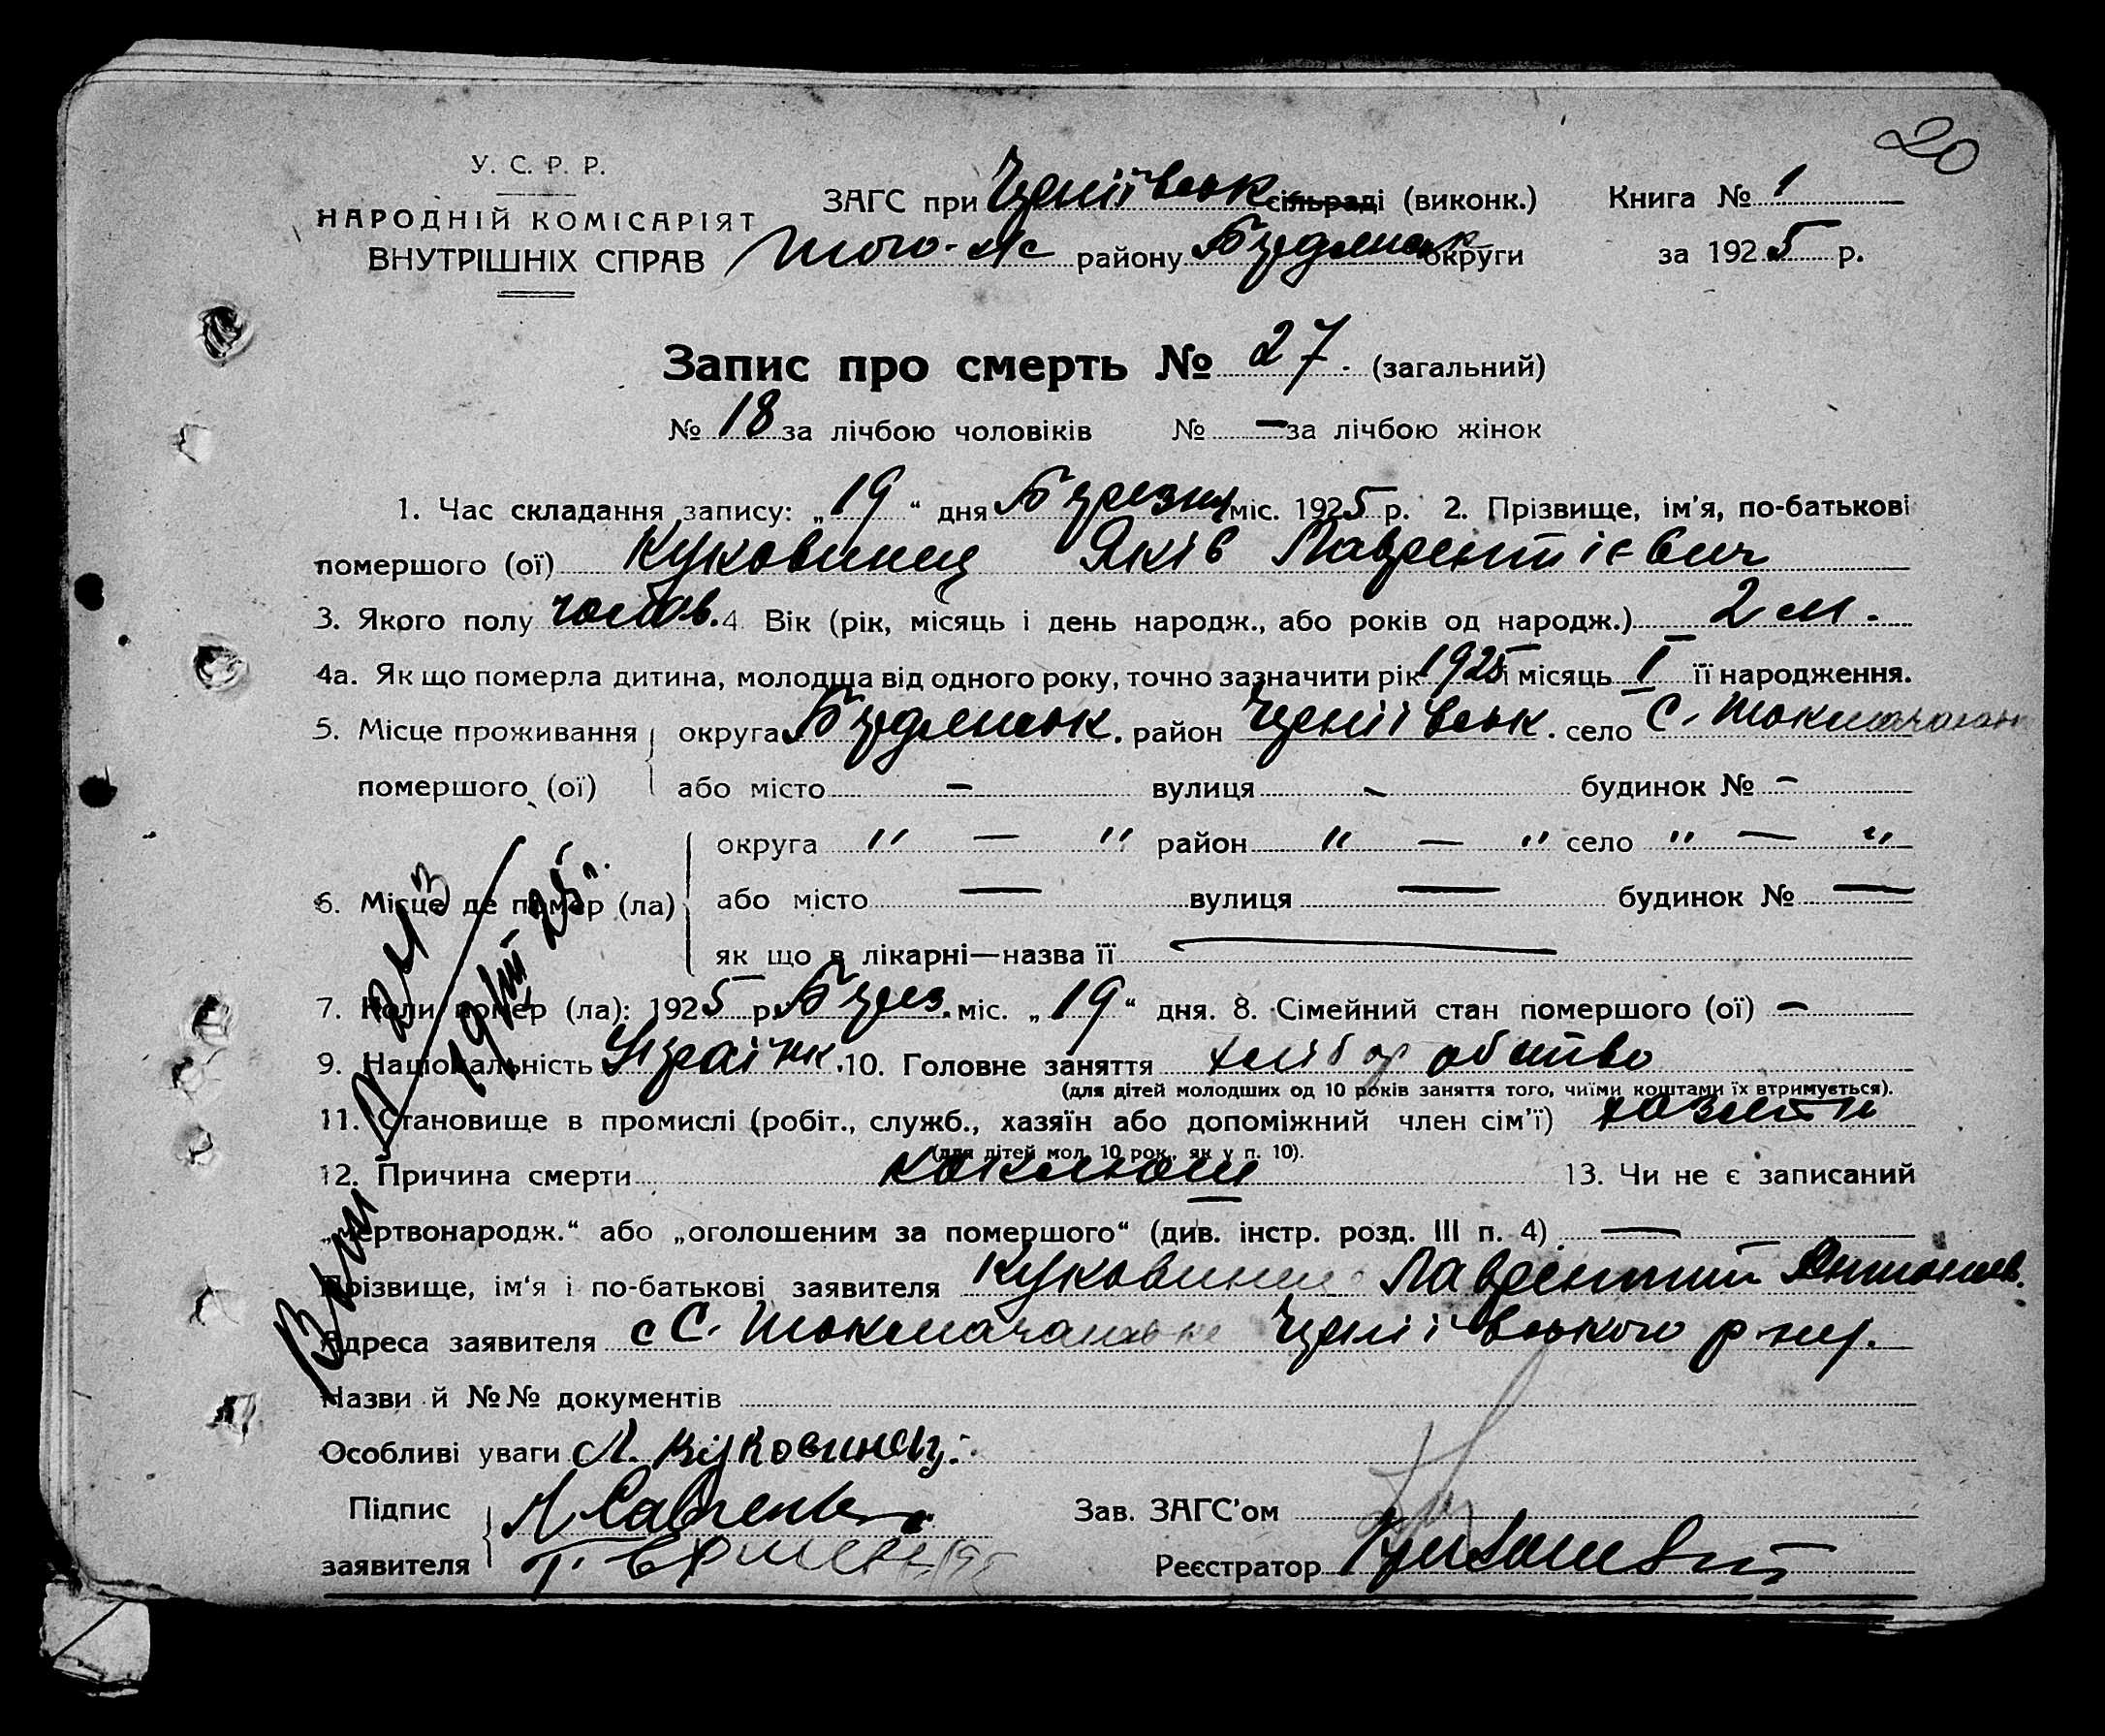 20
У. С. Р. Р.
НАРОДНІЙ КОМІСАРІЯТ
ВНУТРІШНІХ СПРАВ
ЗАГС при Черніївськ сільраді (виконк.) Книга № 1
того-ж району Бердянськ округи за 1925 р.
Запис про смерть № 27. (загальний)
№ 18 за лічбою чоловіків № — за лічбою жінок
1. Час складання запису: „19“ дня Березня міс. 1925 р. 2. Прізвище, ім'я, по-батькові
помершого (ої) Куковинец Яків Лаврентієвич
3. Якого полу чолов. 4. Вік (рік, місяць і день народж., або років од народж.) 2 м.
4а. Як що померла дитина, молодша від одного року, точно зазначити рік 1925 і місяць I її народження.
5. Місце проживання округа Бердянськ. район Черніївськ. село С.
помершого (ої) або місто — вулиця — будинок № —
округа " — " район " — " село " — "
6. Місце де помер (ла) або місто — вулиця — будинок № —
як що в лікарні—назва її —
7. Коли помер (ла): 1925 р. Берез. міс. „19“ дня. 8. Сімейний стан помершого (ої) —
9. Національність Україн. 10. Головне заняття хліборобство
(для дітей молодших од 10 років заняття того, чиїми коштами їх втримується).
11. Становище в промислі (робіт., служб., хазяїн або допоміжний член сім'ї)
(для дітей мол. 10 рок., як у п. 10).
12. Причина смерти коклюш 13. Чи не є записаний
„мертвонародж.“ або „оголошеним за помершого“ (див. інстр. розд. III п. 4) —
Прізвище, ім'я і по-батькові заявителя Куковинец Лаврентий Антонов.
Адреса заявителя с С. Черніївського р-ну.
Назви й №№ документів
Особливі уваги Л. Куковинец
Підпис
заявителя
Зав. ЗАГС'ом
Реєстратор
19/III 25 г.